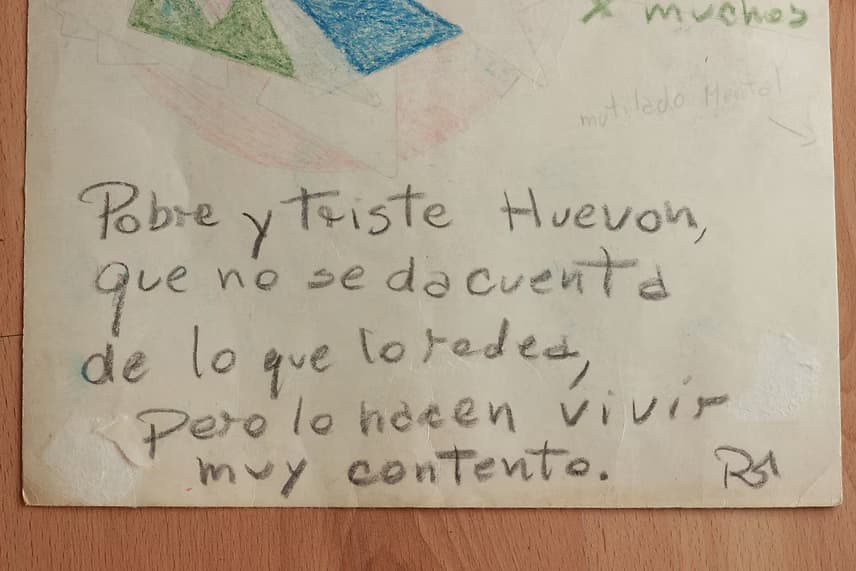 X muchos
mutilado Mental
Pobre y triste Huevon,
que no se da cuenta
de lo que lo rodea,
Pero lo hacen vivir
muy contento.